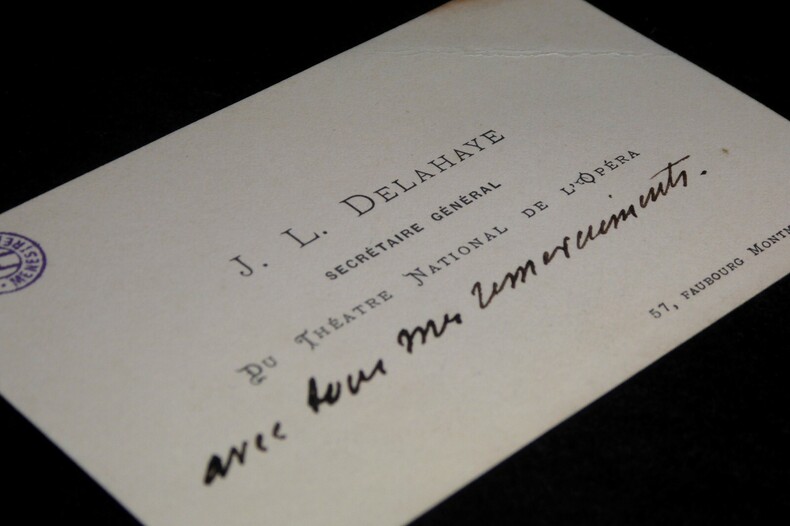 J. L. DELAHAYE
SECRÉTAIRE GÉNÉRAL
DU THÉATRE NATIONAL DE L'OPÉRA
avec tous mes remerciements.
57, FAUBOURG